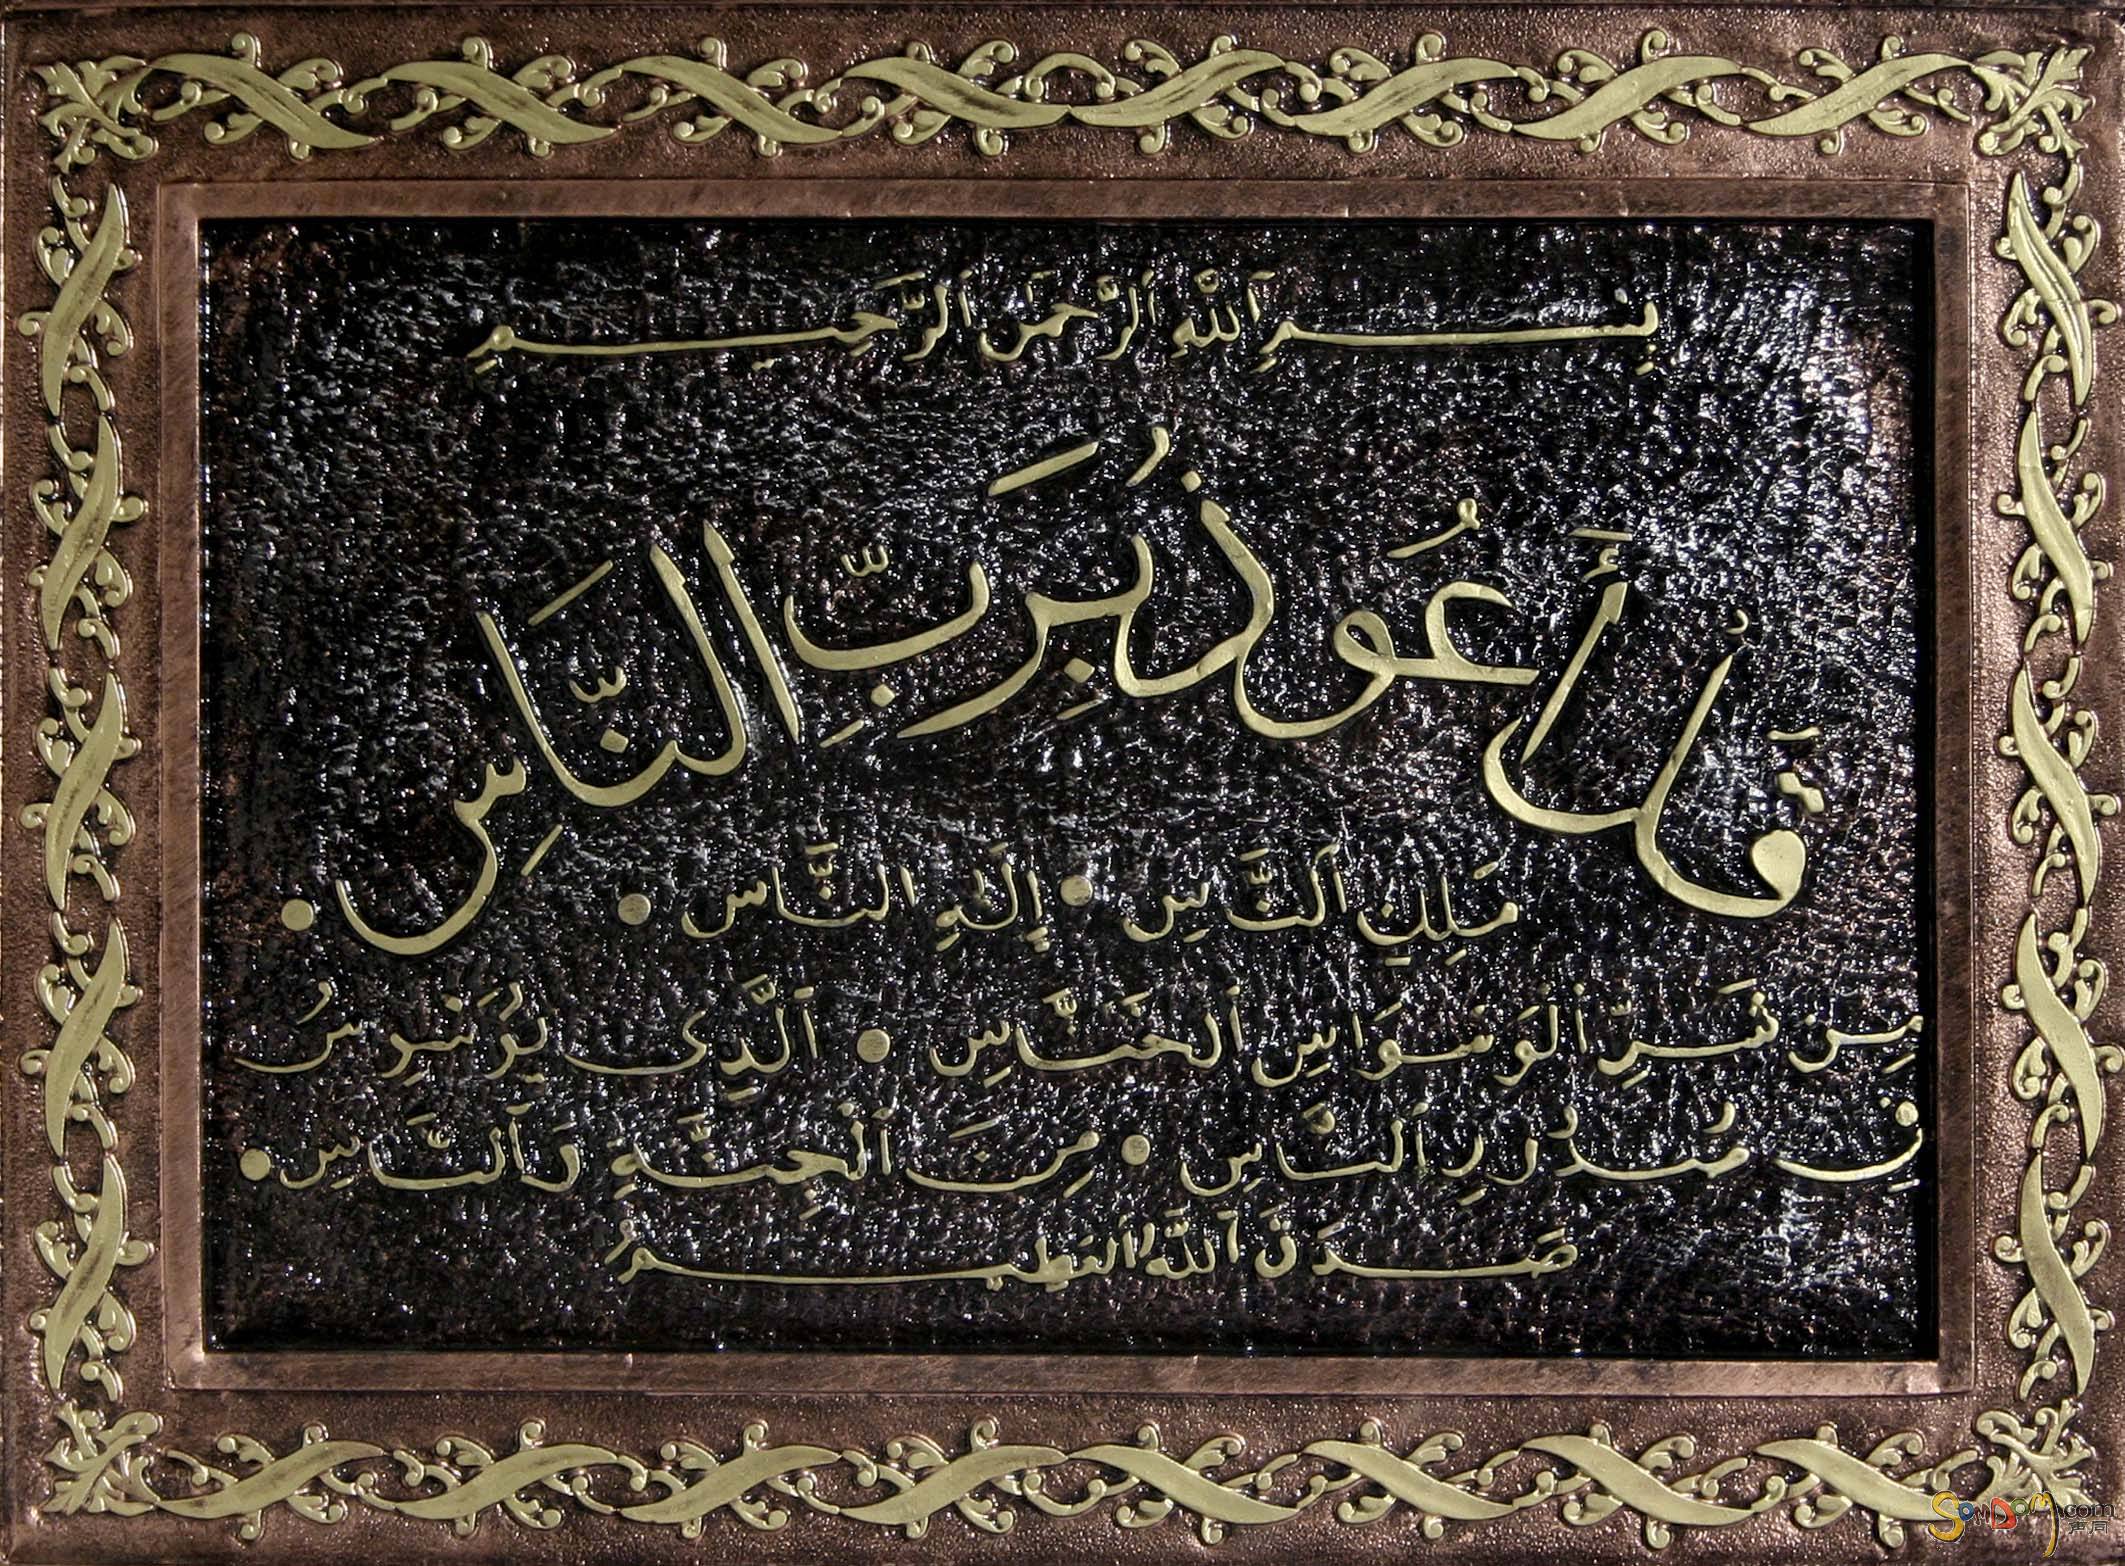 بِسْمِ اللَّهِ الرَّحْمَنِ الرَّحِيمِ
قُلْ أَعُوذُ بِرَبِّ النَّاسِ
مَلِكِ النَّاسِ • إِلَهِ النَّاسِ •
مِن شَرِّ الْوَسْوَاسِ الْخَنَّاسِ • الَّذِي يُوَسْوِسُ
فِي صُدُورِ النَّاسِ • مِنَ الْجِنَّةِ وَالنَّاسِ •
صَدَقَ اللَّهُ الْعَظِيمُ
SOMDOM.com
声同